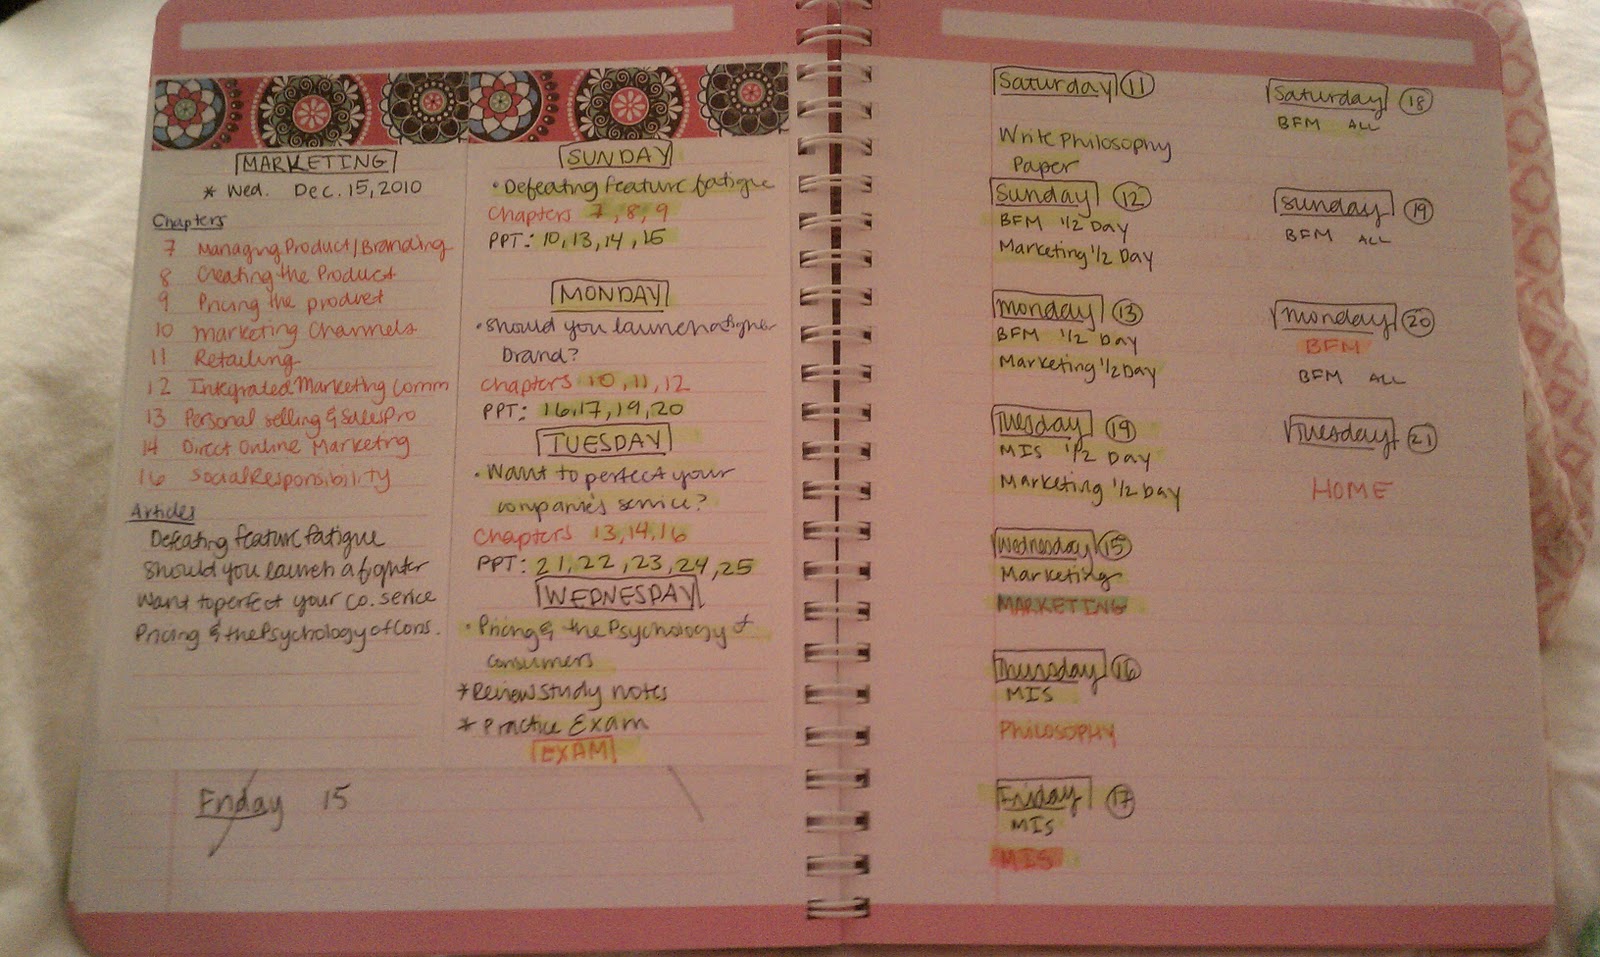 MARKETING
* Wed. Dec. 15, 2010
Chapters
7 Managing Product/Branding
8 Creating the Product
9 Pricing the product
10 Marketing Channels
11 Retailing
12 Integrated Marketing Comm
13 Personal selling & Sales Pro
14 Direct Online Marketing
16 Social Responsibility
Articles
Defeating feature fatigue
Should you launch a fighter
Want to perfect your co. service
Pricing & the Psychology of Cons.
SUNDAY
• Defeating feature fatigue
Chapters 7, 8, 9
PPT: 10, 13, 14, 15
MONDAY
• Should you launch a fighter
brand?
Chapters 10, 11, 12
PPT: 16, 17, 19, 20
TUESDAY
• Want to perfect your
companies service?
Chapters 13, 14, 16
PPT: 21, 22, 23, 24, 25
WEDNESDAY
• Pricing & the Psychology of
consumers
* Review study notes
* Practice Exam
EXAM
Friday 15
Saturday 11
Write Philosophy
Paper
Sunday 12
BFM 1/2 Day
Marketing 1/2 Day
Monday 13
BFM 1/2 Day
Marketing 1/2 Day
Tuesday 14
MIS 1/2 Day
Marketing 1/2 Day
Wednesday 15
Marketing
MARKETING
Thursday 16
MIS
PHILOSOPHY
Friday 17
MIS
MIS
Saturday 18
BFM ALL
Sunday 19
BFM ALL
Monday 20
BFM
BFM ALL
Tuesday 21
HOME